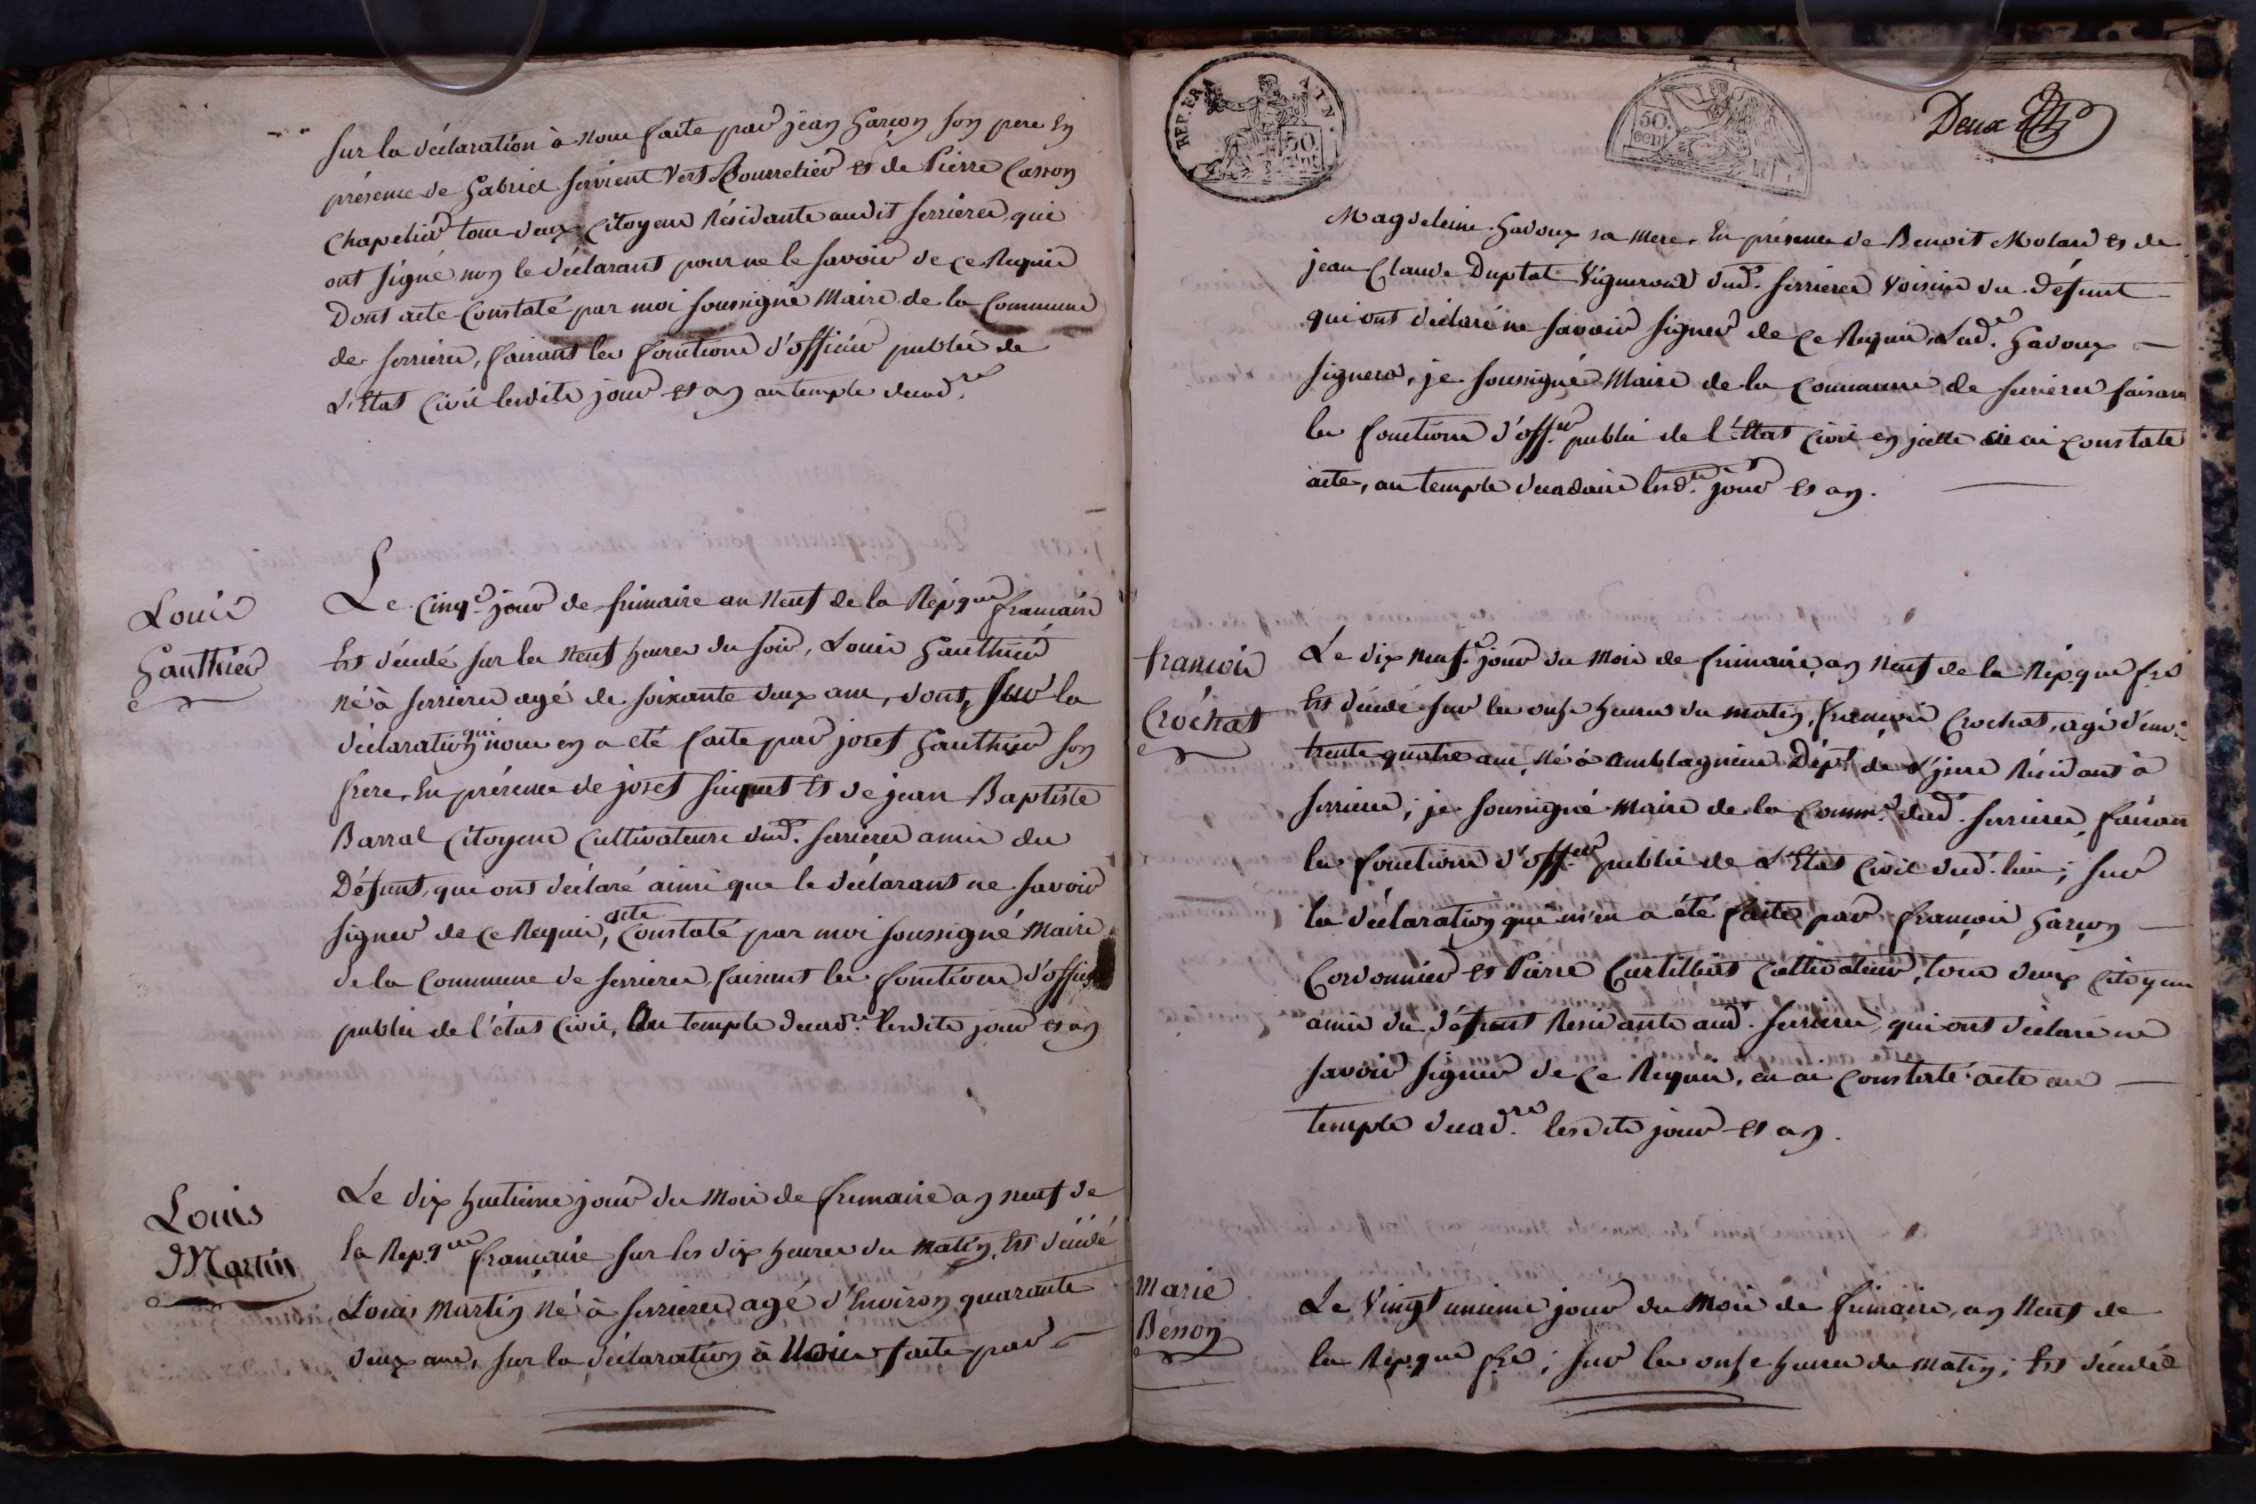 sur la déclaration à nous faite par jean Garçon son pere En
présence de Gabriel servient Vert Bourrelier et de Pierre Casson
Chapelier tous deux Citoyens Résidants audit serrieres, qui
ont signé non le déclarant pour ne le savoir de ce Requis
Dont acte Constaté par moi soussigné Maire de la Commune
de serrieres, faisant les fonctions d'officier public de
L'Etat Civil lesdits jour et an au temple decad.re
Louis
Gauthier
Le cinq.e jour de frimaire an Neuf de la Rép.que française
Est décédé sur les Neuf heures du soir, Louis Gauthier
Né à serrieres agé de soixante deux ans, dont, sur la
déclaration qui nous en a été faite par josef Gauthier son
frere, En présence de josef et de jean Baptiste
Barral Citoyens Cultivateurs dud. serrieres amis du
Défunt, qui ont déclaré ainsi que le déclarant ne savoir
signer de ce Requis, acte Constaté par moi soussigné Maire
de la Commune de serrieres, faisant les fonctions d'officier
public de l'état Civil, Au temple decad.re lesdits jour et an
Louis
Martin
Le dix huitieme jour du Mois de frimaire an neuf de
la Rep.que française sur les dix heures du matin, Est décédé
Louis Martin Né à serrieres, agé d'Environ quarante
deux ans, sur la déclaration à Nous faite par
REP. FRA NAT N.
50 cent
50. cent
Deux
Magdeleine Gadoux sa mere, En présence de Benoit Molard et de
jean Claude Duplat Vignerons dud. serrieres Voisins du défunt
qui ont déclaré ne savoir signer de ce Requis, Lad.e Gadoux
signera, je soussigné Maire de la Commune de serrieres faisant
les fonctions d'off.er public de l'Etat Civil en ai constaté
acte, au temple decadaire lesd.ts jour et an.
francois
Crochat
Le dix neuf.e jour du Mois de frimaire, an Neuf de la Rép.que fr.se
Est décédé sur les onze heures du matin, francois Crochat, agé d'env.
trente quatre ans, Né à amblagnieu Dép.t de L'jsere Résidant à
serrieres, je soussigné Maire de la Comm.e dud. serrieres, faisant
les fonctions d'off.er public de L'Etat Civil dud. lieu; sur
la déclaration que m'en a été faite par françois Garçon
Cordonnier et Pierre Curtilliat Cultivateur, tous deux Citoyens
amis du défunt Residants aud. serrieres, qui ont déclaré ne
savoir signer de ce Requis, en ai constaté acte au
temple decad.re lesdits jour et an.
Marie
Besson
Le Vingt unieme jour du Mois de frimaire, an Neuf de
la Rép.que fr.se; sur les onze heures du matin; Est décédée